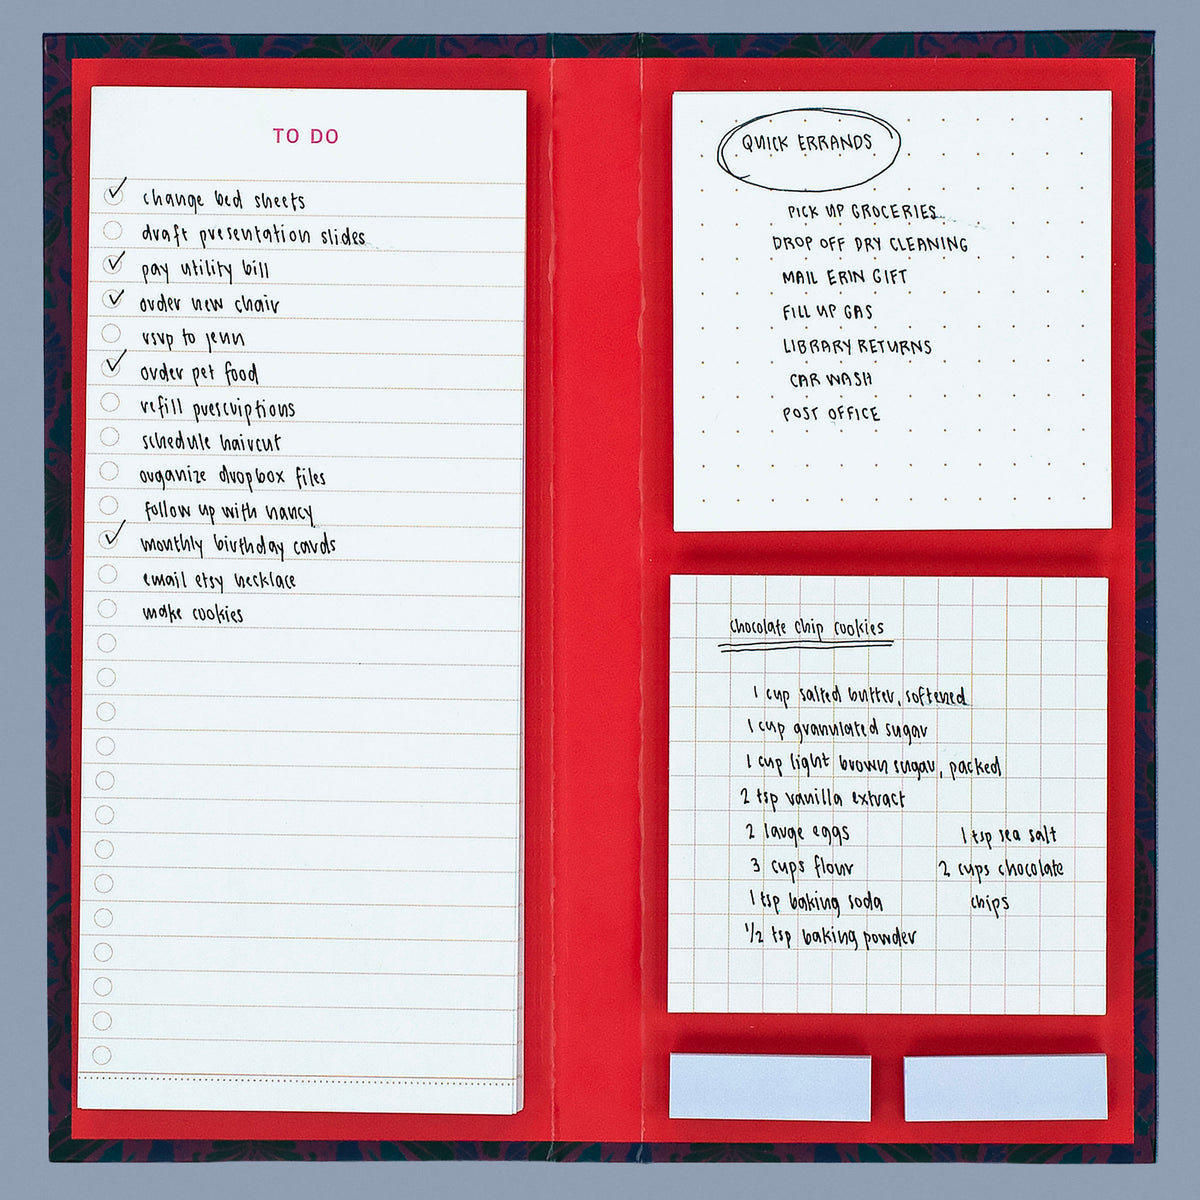 TO DO
change bed sheets
draft presentation slides
pay utility bill
order new chair
rsvp to jenn
order pet food
refill prescriptions
schedule haircut
organize dropbox files
follow up with nancy
monthly birthday cards
email etsy necklace
make cookies
QUICK ERRANDS
PICK UP GROCERIES
DROP OFF DRY CLEANING
MAIL ERIN GIFT
FILL UP GAS
LIBRARY RETURNS
CAR WASH
POST OFFICE
chocolate chip cookies
1 cup salted butter, softened
1 cup granulated sugar
1 cup light brown sugar, packed
2 tsp vanilla extract
2 large eggs
3 cups flour
1 tsp baking soda
1/2 tsp baking powder
1 tsp sea salt
2 cups chocolate
chips